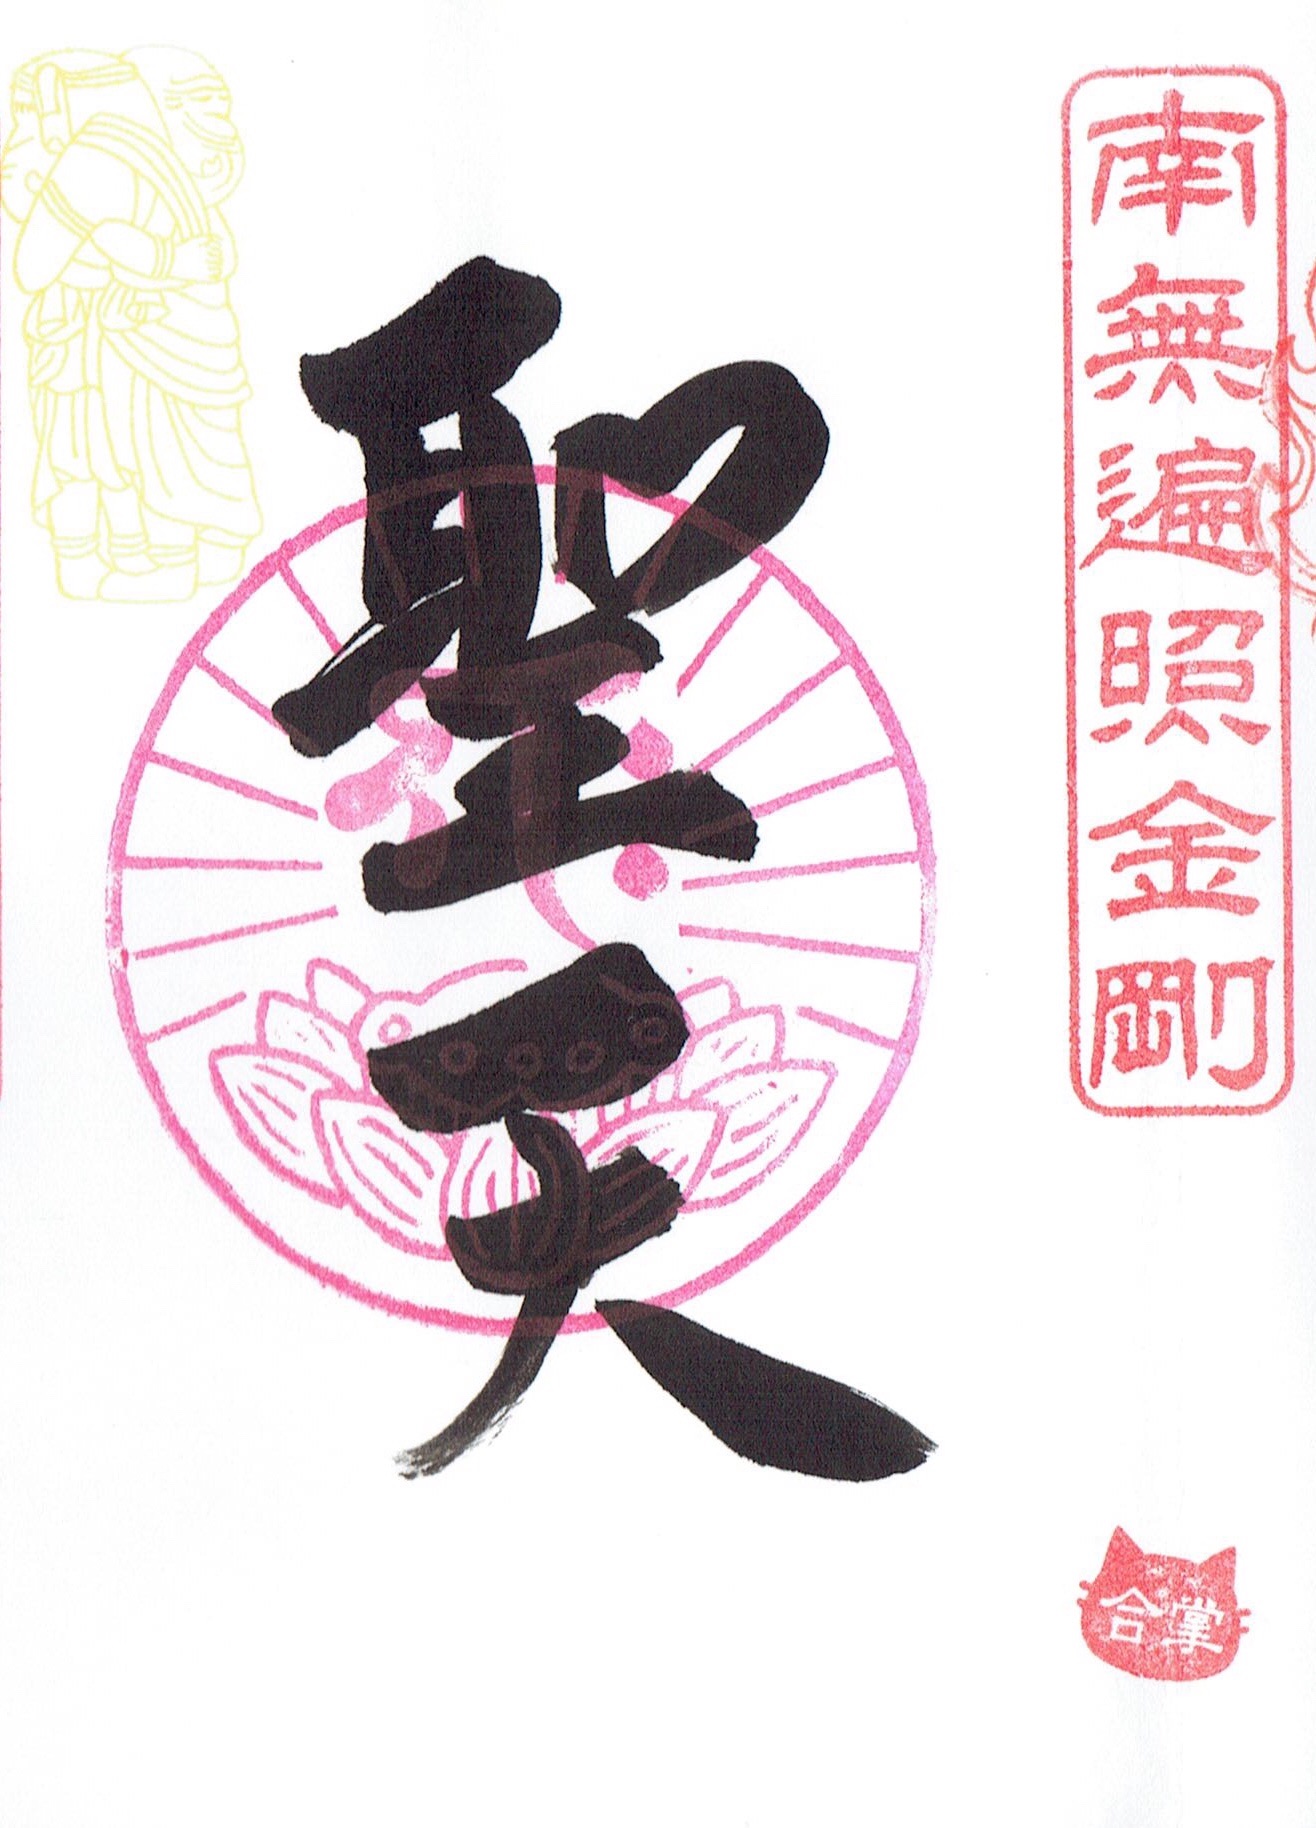 南無遍照金剛
聖天
合掌